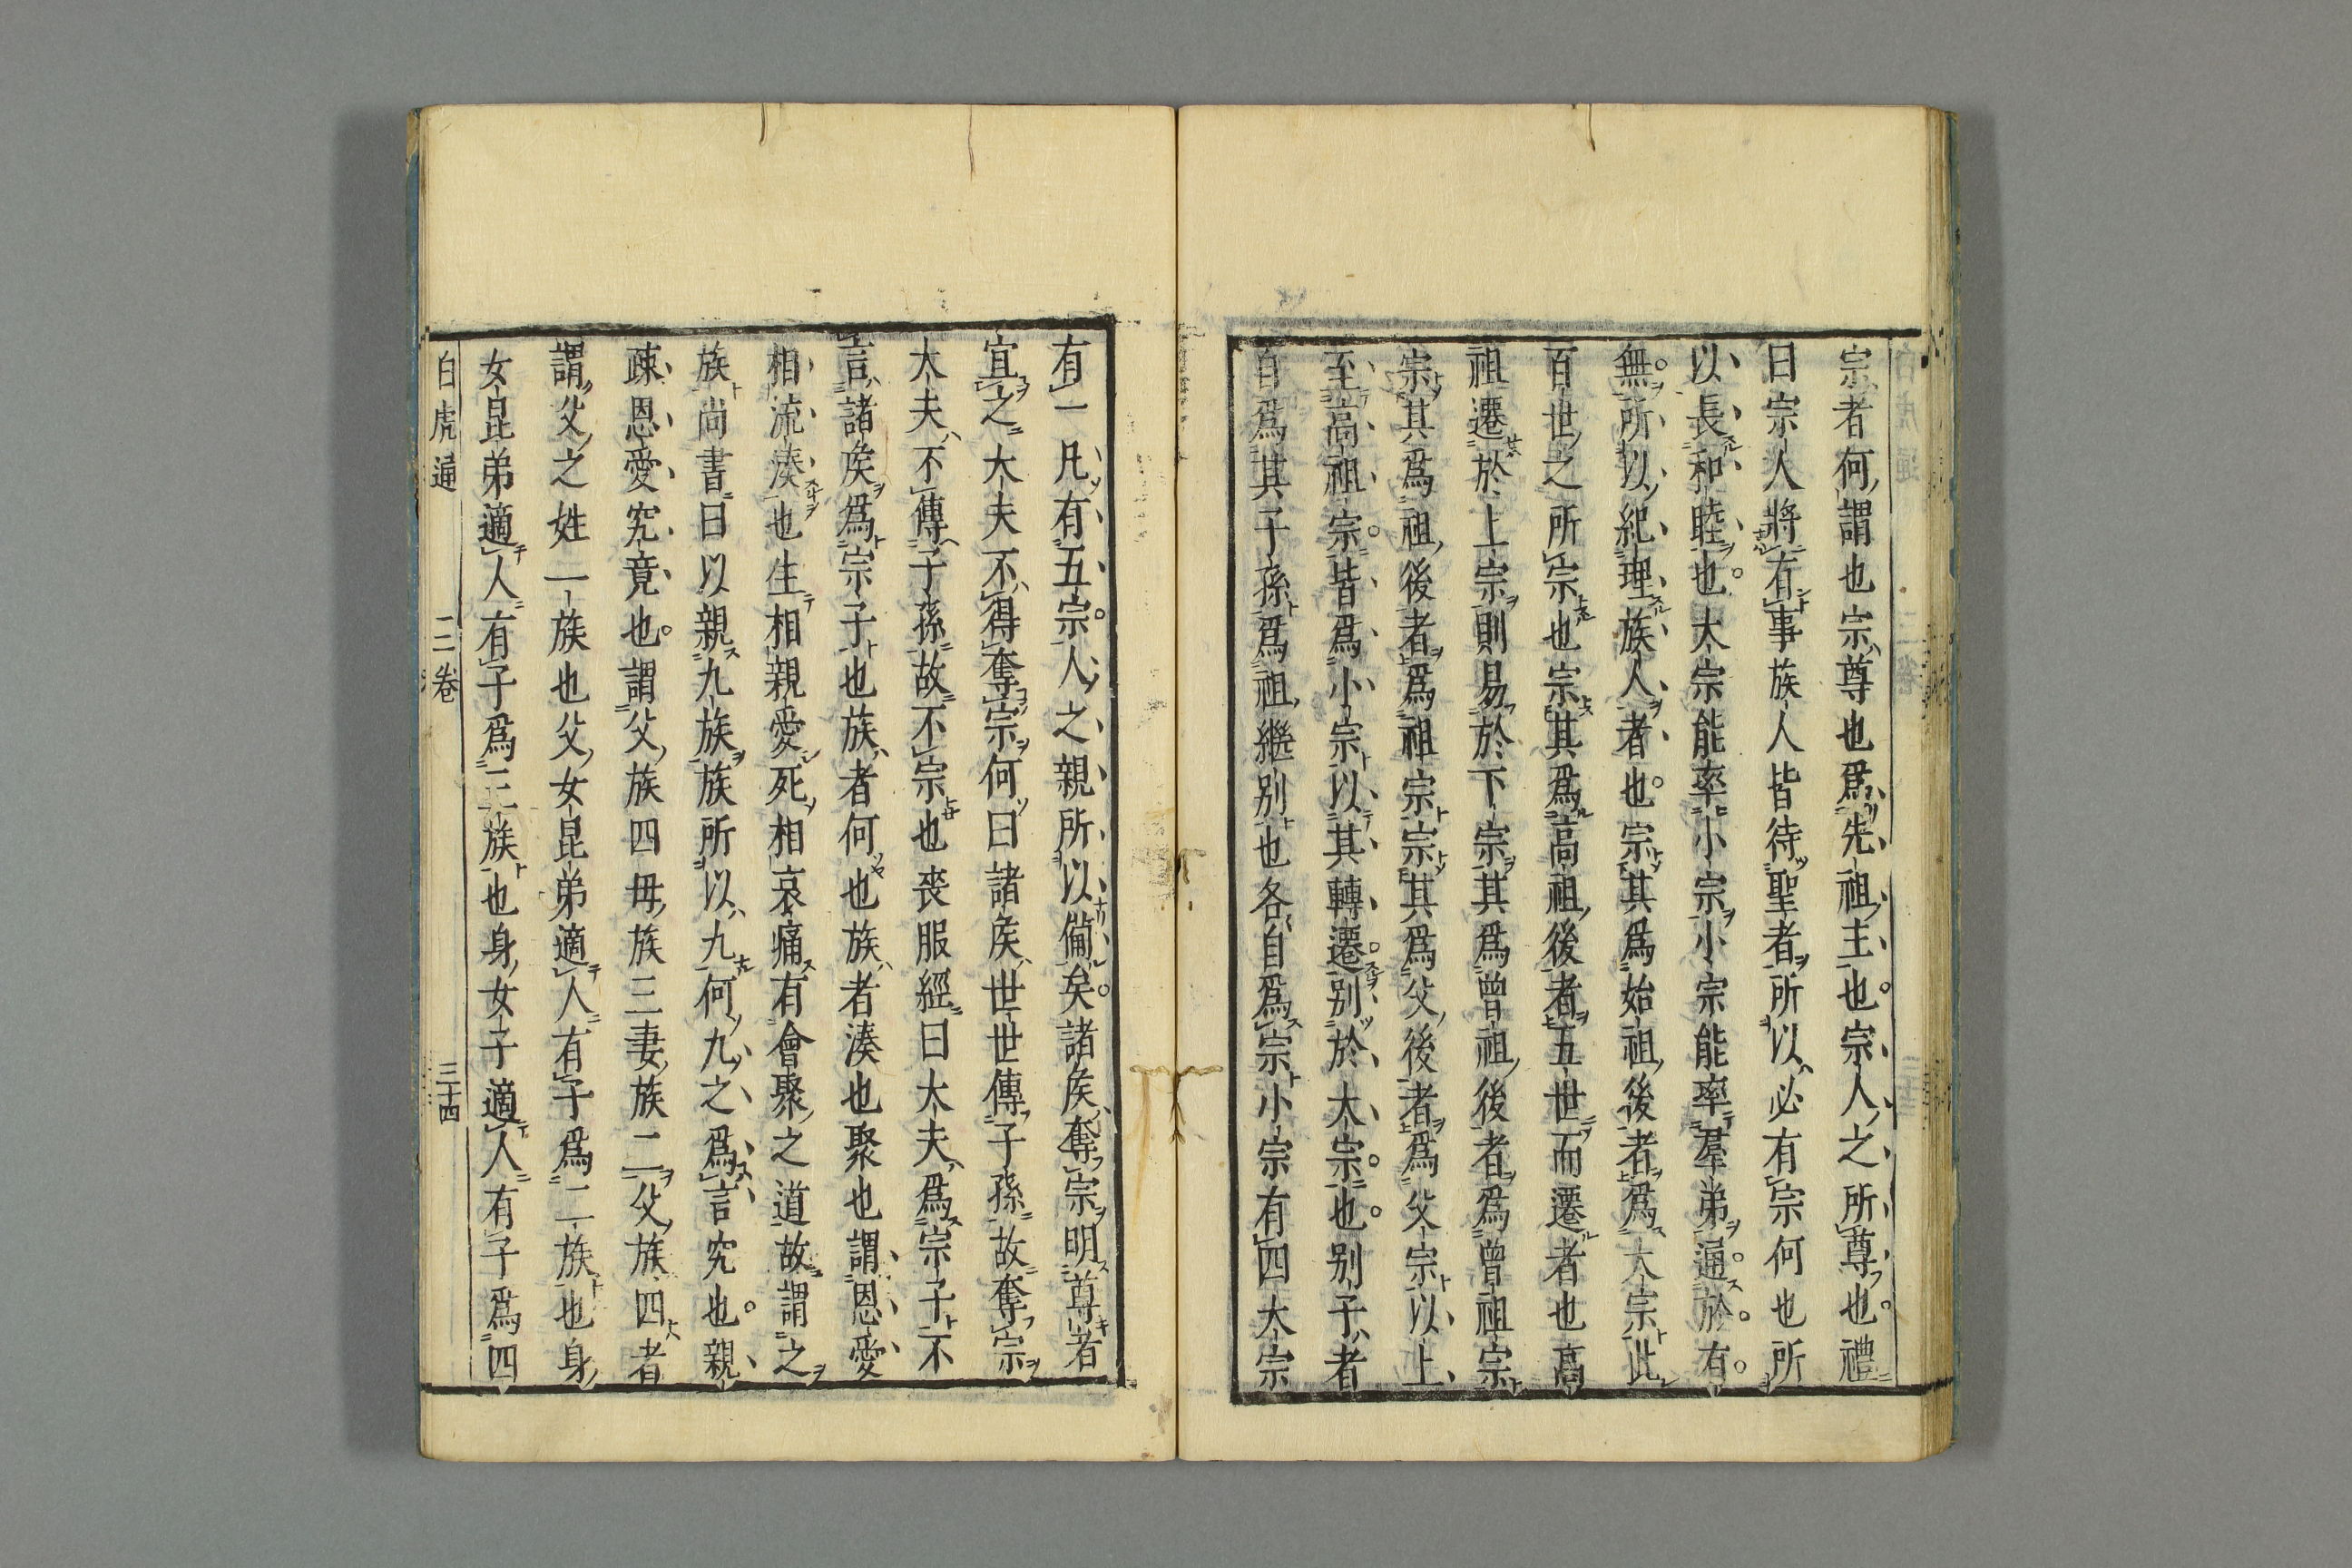 宗者何謂也宗尊也爲先祖主也宗人之所尊也禮
曰宗人將有事族人皆待聖者所以必有宗何也所
以長和睦也大宗能率小宗小宗能率羣弟通於有
無所以紀理族人者也宗其爲始祖後者爲大宗此
百世之所宗也宗其爲高祖後者五世而遷者也高
祖遷於上宗則易於下宗其爲曾祖後者爲曾祖宗
宗其爲祖後者爲祖宗宗其爲父後者爲父宗以上
至高祖宗皆爲小宗以其轉遷別於大宗也別子者
自爲其子孫爲祖繼別也各自爲宗小宗有四大宗
有一凡有五宗人之親所以備矣諸侯奪宗明尊者
宜之大夫不得奪宗何曰諸侯世世傳子孫故奪宗
大夫不傳子孫故不宗也喪服經曰大夫爲宗子不
言諸侯爲宗子也族者何也族者湊也聚也謂恩愛
相流湊也生相親愛死相哀痛有會聚之道故謂之
族尚書曰以親九族族所以九何九之爲言究也親
疎恩愛究竟也謂父族四母族三妻族二父族四者
謂父之姓一族也父女昆弟適人有子爲二族也身
女昆弟適人有子爲三族也身女子適人有子爲四
白虎通　二卷　三十四